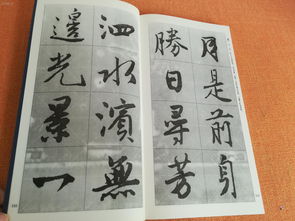 月是前身
勝日尋芳
泗水濱無
邊光景一